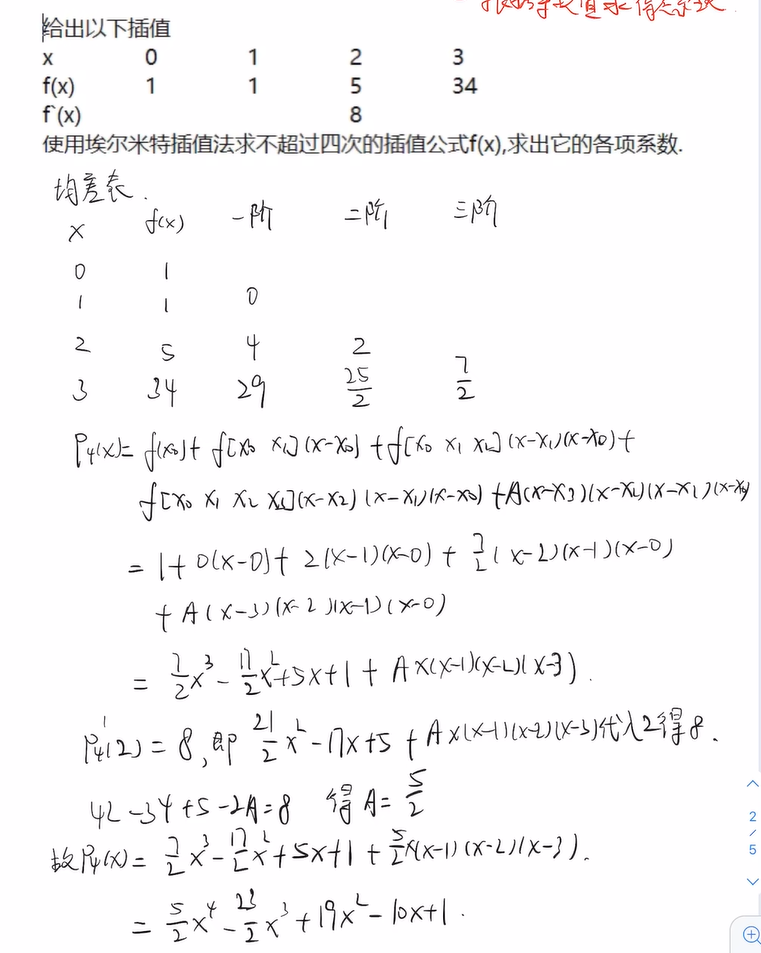 给出以下插值
x 0 1 2 3
f(x) 1 1 5 34
f`(x) 8
使用埃尔米特插值法求不超过四次的插值公式f(x),求出它的各项系数.
均差表.
x f(x) 一阶 二阶 三阶
0 1
1 1 0
2 5 4 2
3 34 29 25/2 7/2
P₄(x)= f(x₀)+ f[x₀ x₁](x-x₀) + f[x₀ x₁ x₂](x-x₁)(x-x₀) +
f[x₀ x₁ x₂ x₃](x-x₂)(x-x₁)(x-x₀) + A(x-x₃)(x-x₂)(x-x₁)(x-x₀)
= 1+ 0(x-0)+ 2(x-1)(x-0) + 7/2(x-2)(x-1)(x-0)
+ A(x-3)(x-2)(x-1)(x-0)
= 7/2x³ - 17/2x²+5x+1 + Ax(x-1)(x-2)(x-3).
P₄'(2) = 8,即 21/2x² - 17x+5 + Ax(x-1)(x-2)(x-3)代入2得8.
42-34+5-2A=8 得A= 5/2
故P₄(x)= 7/2x³ - 17/2x²+5x+1 + 5/2x(x-1)(x-2)(x-3).
= 5/2x⁴ - 23/2x³ +19x² -10x+1.
2
/
5